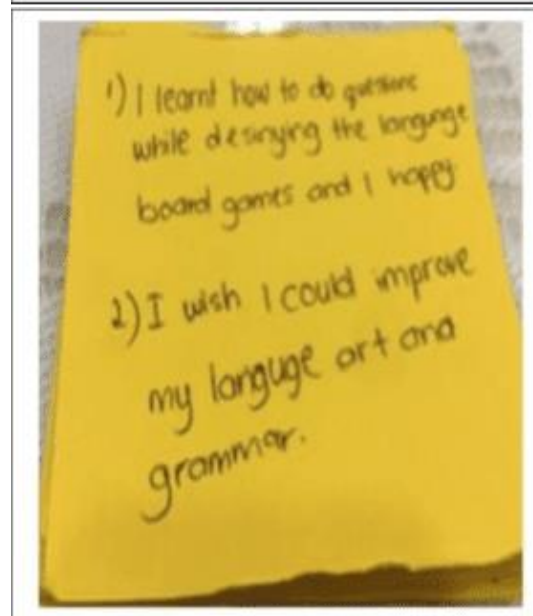 1) I learnt how to do questions
while desinying the langunge
board games and I happy.
2) I wish I could improve
my languge art and
grammar.